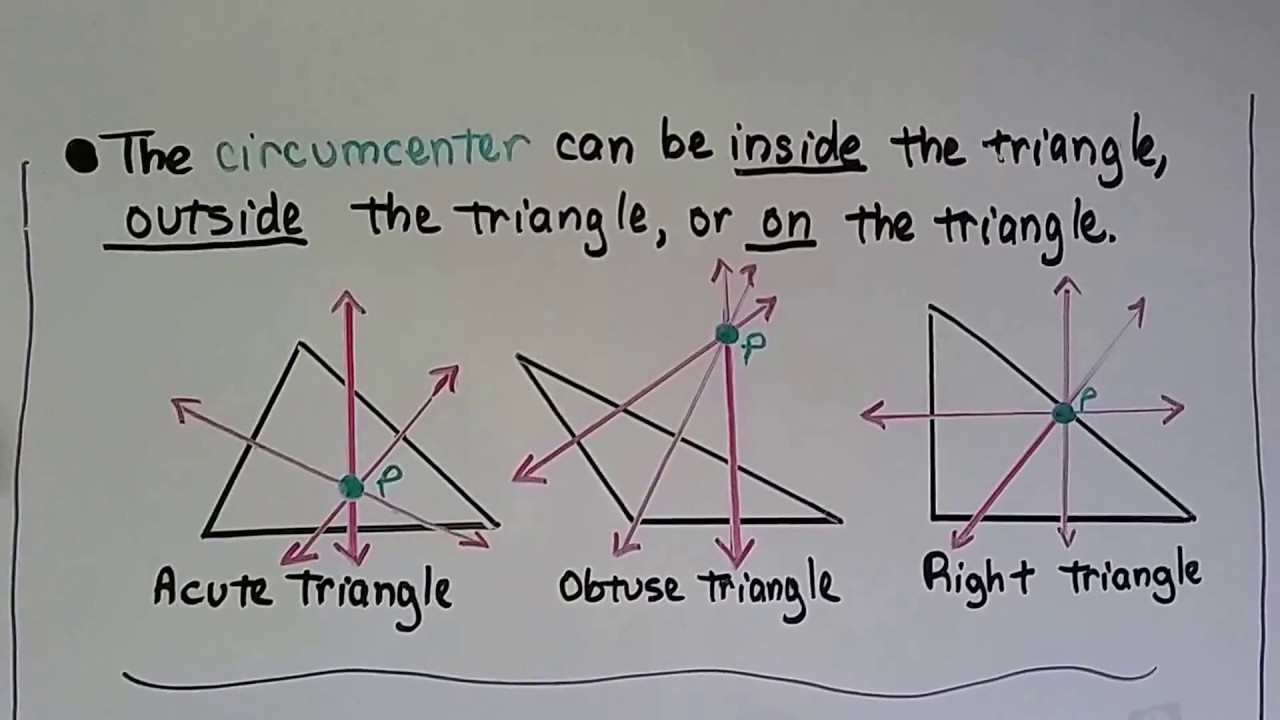 ● The circumcenter can be inside the triangle,
outside the triangle, or on the triangle.
P
P
P
Acute Triangle
Obtuse Triangle
Right Triangle